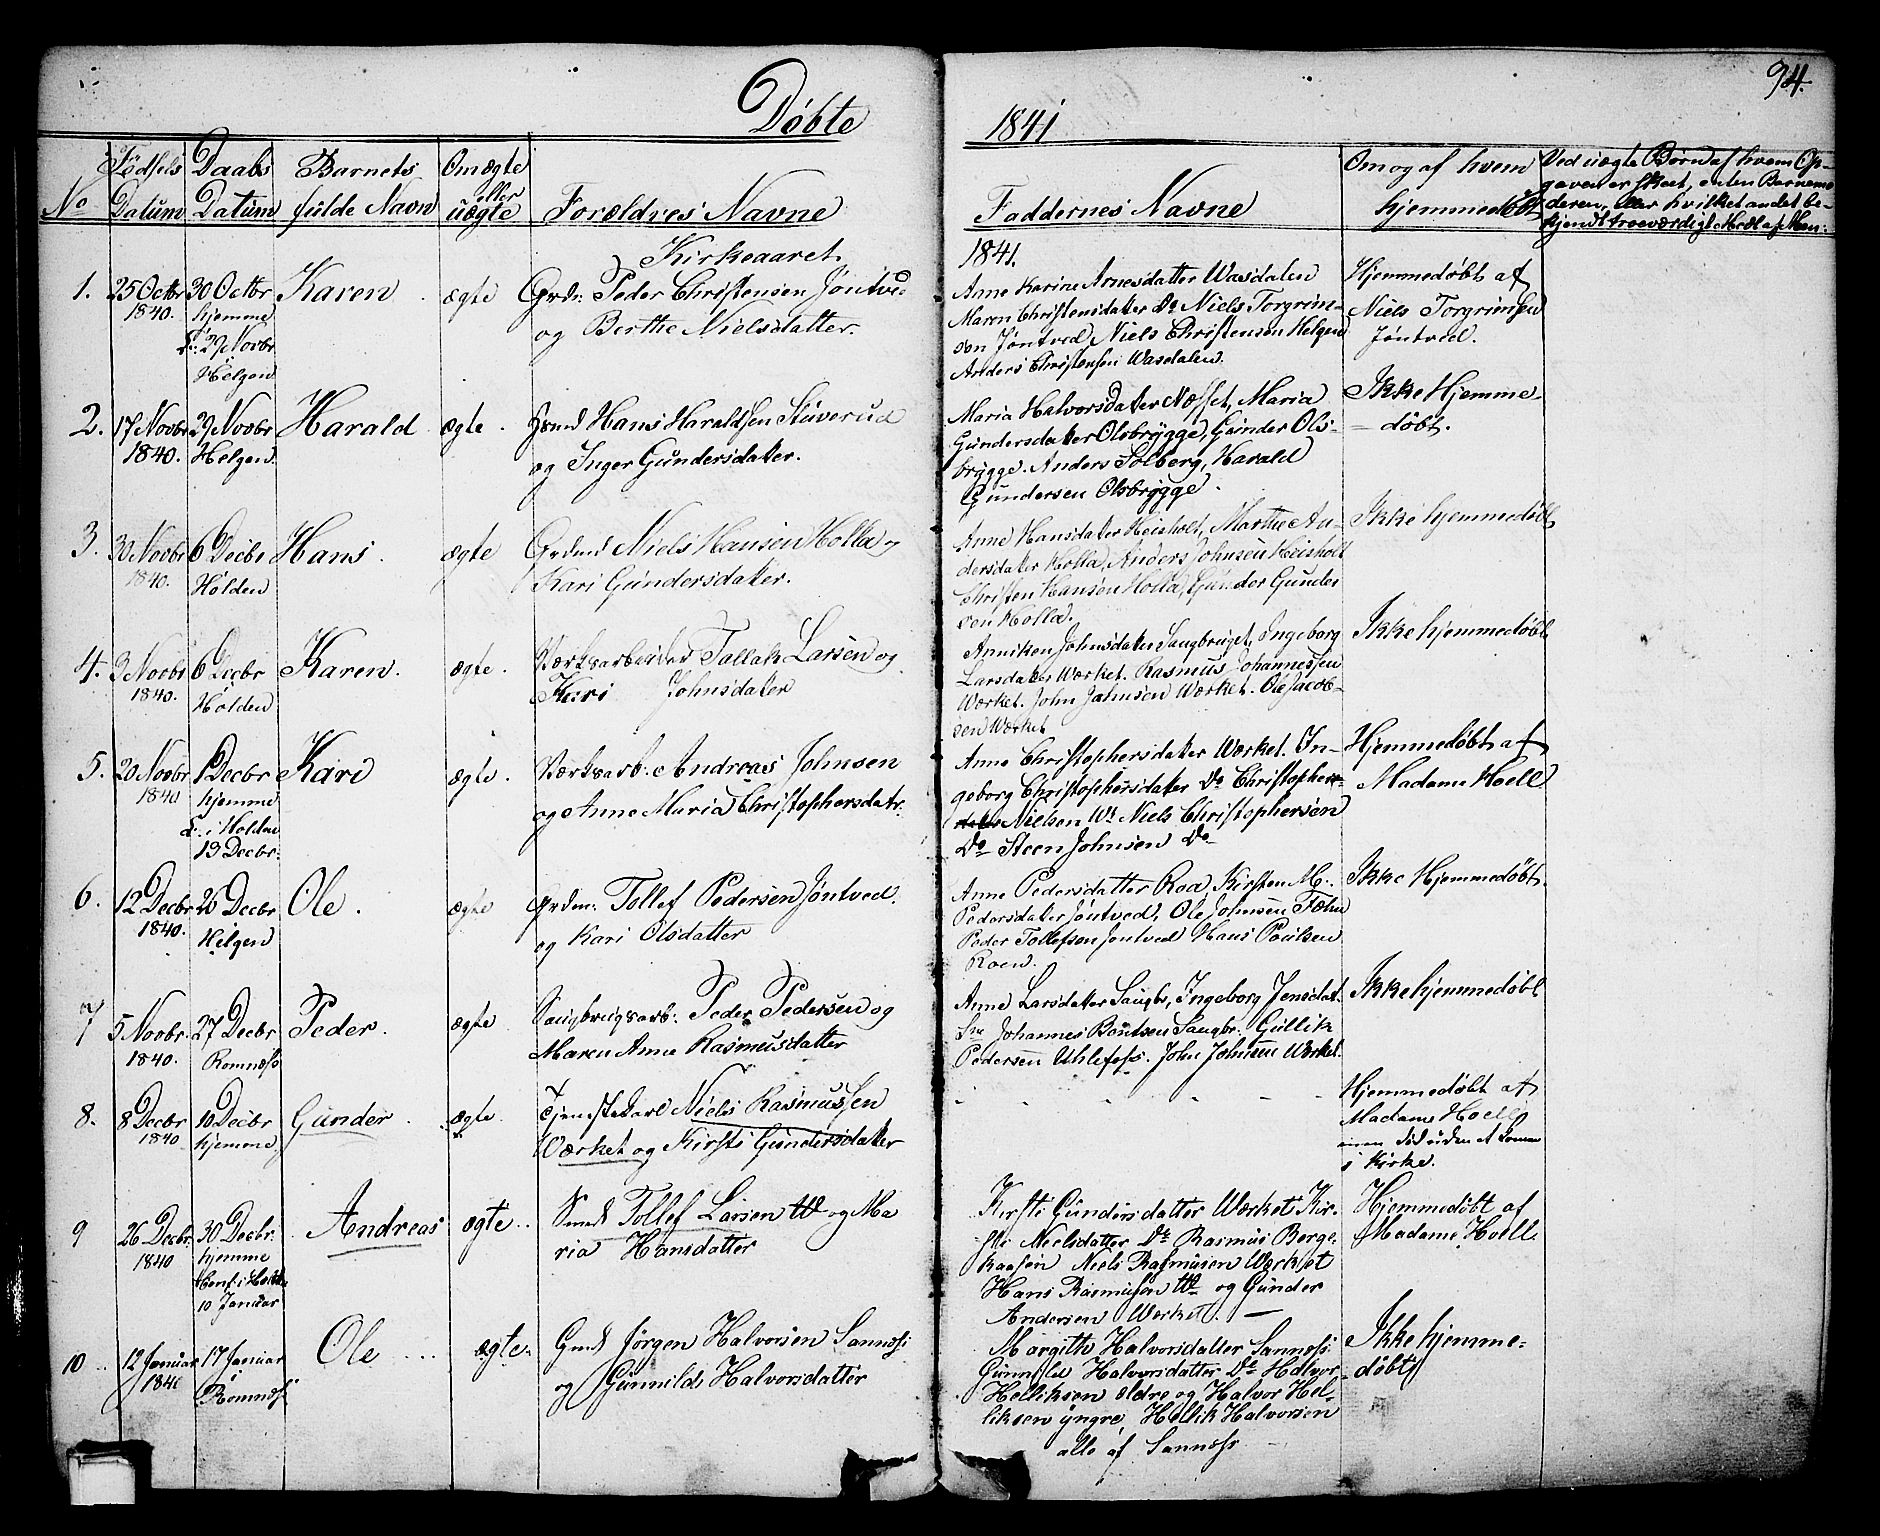 94.
Døbte 1841
No
Fødsels Datum
Daabs Datum
Barnets fulde Navn
Om ægte eller uægte
Forældres Navne
Faddernes Navne
Om og af hvem hjemmedøbt
Ved uægte Børn af hvem Op-
gaven er skeet, enten Barnemo
deren, eller hvilket andet be-
kjendt troeværdigt
Kirkeaaret 1841.
1. 25 Octbr 1840.
30 Octbr hjemme
29 Novbr
Helgen
Karen
ægte
Grdm: Peder Christensen Jøntve-
og Berthe Nielsdatter.
Anne Karine Arnesdatter Wasdalen
Maren Christensdater Do Niels Torgrim-
sen Jøntved, Niels Christensen Helgen
Anders Christensen Wasdalen.
Hjemmedøbt af
Niels Torgrimsen
Jøntved.
2. 17 Novbr 1840.
29 Novbr
Helgen
Harald
ægte.
Hans Haraldsen Stuverud
og Inger Gundersdater.
Maria Halvorsdater Næsset, Maria
Gundersdater Olsbrygge, Gunder Ols-
brygge. Anders Solberg, Harald
Gundersen Olsbrygge.
Ikke Hjemme-
døbt.
3. 30 Novbr 1840.
6 Decbr
Holden
Hans.
ægte
Grdmd Niels Hansen Holla og
Kari Gundersdater.
Anne Hansdater Heisholt, Marthe An-
dersdater Holla, Anders Johnsen Heisholt
Christen Hansen Holla, Gunder Gunder
sen Holla.
Ikke hjemmedøbt
4. 3 Novbr 1840.
6 Decbr
Holden
Karen.
ægte.
Værksarbeider Tollak Larsen og
Kari Johnsdater
Anniken Johnsdater Saugbruget, Ingeborg
Larsdater Værket. Rasmus Johannessen
Værket. John Johnsen Værket. Ole Jacob-
sen Værket
Ikke hjemmedøbt
5. 20 Novbr 1840
1 Decbr
hjemme
i Holden
13 Decbr.
Kari
ægte.
Værksarb. Andreas Johnsen
og Anne Maria Christophersdatr.
Anne Christophersdater Værket. In-
geborg Christophersdater Do Christopher
Nielsen Wt Niels Christophersen
Do Steen Johnsen Do
Hjemmedøbt af
Madame Hoell
6. 12 Decbr 1840.
26 Decbr
Helgen
Ole.
ægte
Grdm: Tollef Pedersen Jøntved.
og Kari Olsdatter
Anne Pedersdatter Roa, Kirsten M:
Pedersdater Jøntved, Ole Johnsen Fæhn
Peder Tollefsen Jøntved Hans Poulsen
Roen.
Ikke Hjemmedøbt.
7 5 Novbr. 1840.
27 Decbr
Romnæss
Peder.
ægte
Saugbrugsarb: Peder Pedersen og
Maren Anne Rasmusdatter
Anne Larsdater Saugbr, Ingeborg Jensdat.
Johannes Bentsen Saugbr. Gullik
Pedersen Uhlefoss. John Johnsen Værket.
Ikke hjemmedøbt
8. 8 Decbr 1840
10 Decbr
hjemme.
Gunder.
ægte.
Tjenestekarl Niels Rasmussen
Værket og Kirsti Gundersdatter
- - - - - -
Hjemmedøbt af
Madame Hoell
men død uden at komme
i Kirke.
9 26 Decbr. 1840
30 Decbr.
hjemme
10 Januar
Andreas
ægte..
Smed Tollef Larsen W og Ma
ria Hansdatter
Kirsti Gundersdatter Værket Kir-
sti Nielsdatter Do Rasmus Berge
Kaasen Niels Rasmusen Værket
Hans Rasmusen Wo og Gunder
Andersen Værket. —
Hjemmedøbt af
Madame Hoell.
10.. 12 Januar 1841
17 Januar
Romnæss
Ole ...
ægte.
Gmd Jørgen Halvorsen Sannæss
og Gunnild Halvorsdatter
Margith Halvorsdatter Sannæss
Gunnild Halvorsdatter Do Halvor
Helliksen ældre og Halvor Hel-
liksen yngre, Hellik Halvorsen
alle af Sannæss
Ikke hjemme-
døbt